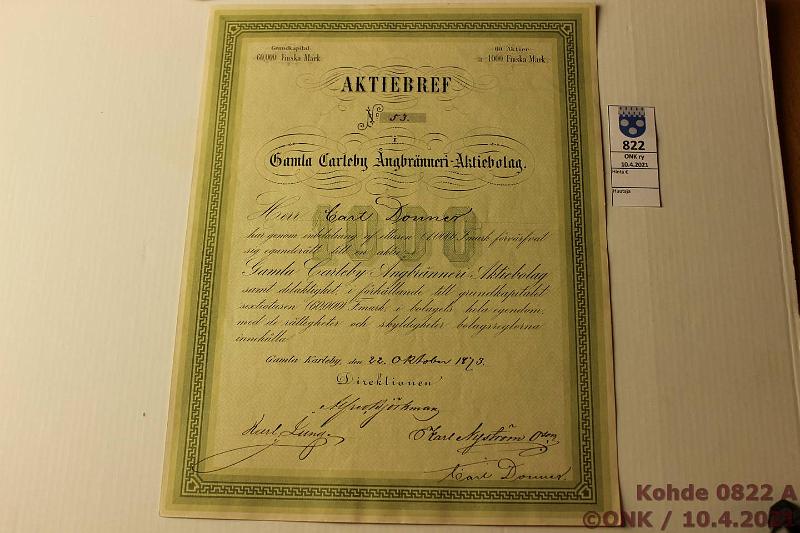 Grundkapital
60,000 Finska Mark.
60 Aktier
a 1000 Finska Mark.
AKTIEBREF
No 53.
i
Gamla Carleby Ångbränneri-Aktiebolag.
Herr Carl Donner
har genom inbetalning af ettusen (1000) Fmark förvärfvat
sig eganderätt till en aktie i
Gamla Carleby Ångbränneri-Aktiebolag
samt delaktighet, i förhållande till grundkapitalet
sextiotusen (60,000) Fmark, i bolagets hela egendom,
med de rättigheter och skyldigheter bolagsreglorna
innehålla.
1000
Gamla Karleby, den 22 Oktober 1873.
Direktionen
Alfred Björkman
Karl Jung
Karl Nyström
Carl Donner.
822
ONK ry
10.4.2021
Hinta €
Huutaja
Kohde 0822 A
©ONK / 10.4.2021